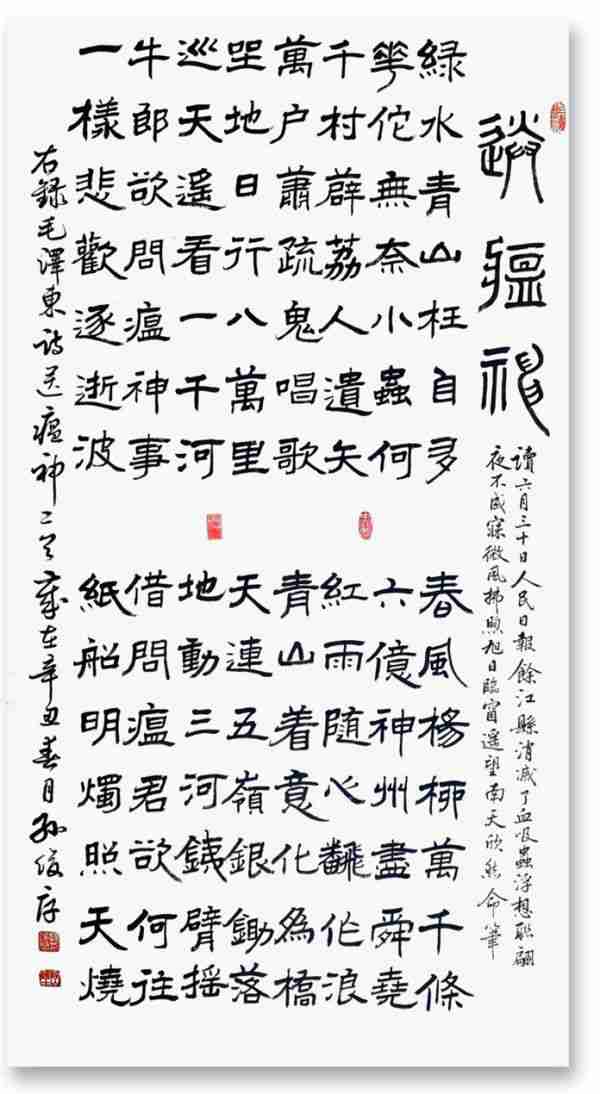 送瘟神
讀六月三十日人民日報餘江縣消滅了血吸蟲浮想聯翩
夜不成寐微風拂煦旭日臨窗遥望南天欣然命筆
綠水青山枉自多
華佗無奈小蟲何
千村薜荔人遺矢
萬户蕭疏鬼唱歌
坐地日行八萬里
巡天遥看一千河
牛郎欲問瘟神事
一樣悲歡逐逝波
春風楊柳萬千條
六億神州盡舜堯
紅雨隨心翻作浪
青山着意化為橋
天連五嶺銀鋤落
地動三河鐵臂摇
借問瘟君欲何往
紙船明燭照天燒
右録毛澤東詩送瘟神二首歲在辛丑春月孫俊存